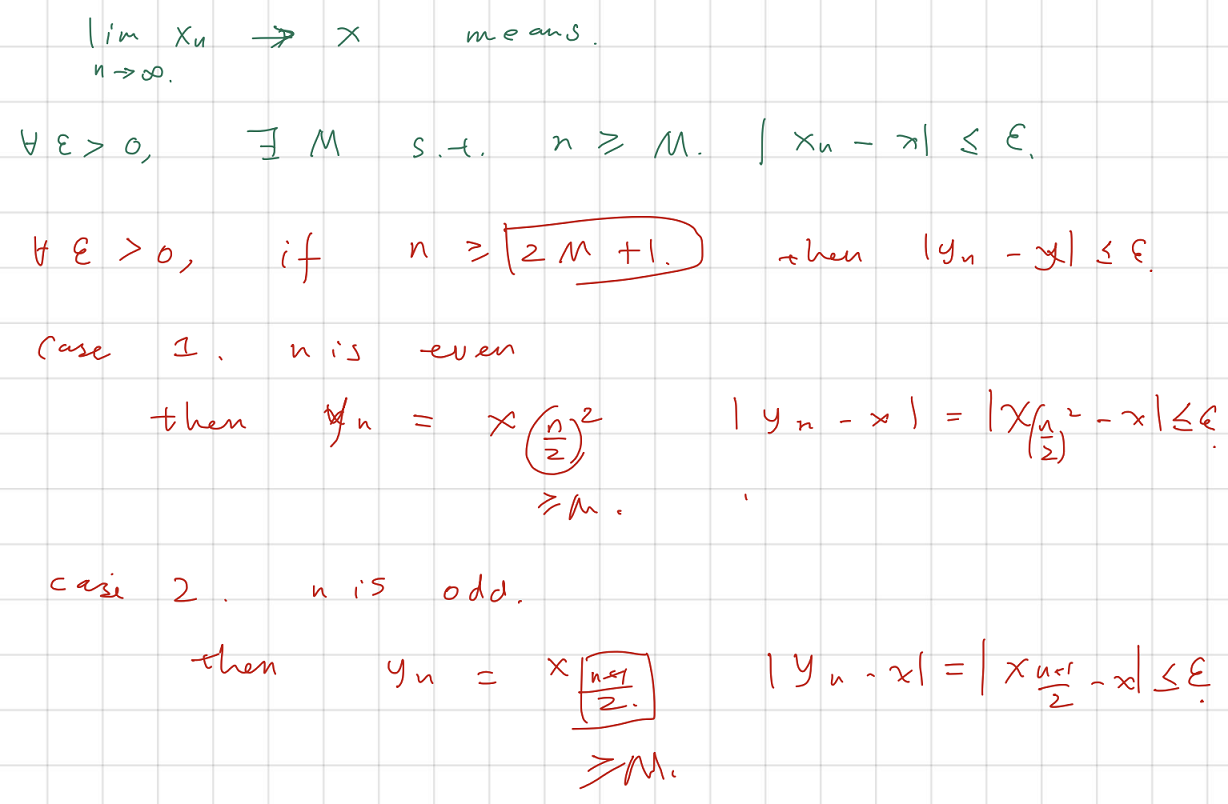 lim xₙ → x means.
n → ∞.
∀ ε > 0, ∃ M s.t. n ≥ M. |xₙ - x| ≤ ε.
∀ ε > 0, if n ≥ 2M + 1. then |yₙ - x| ≤ ε.
case 1. n is even
then yₙ = x_(n/2)² |yₙ - x| = |x_(n/2)² - x| ≤ ε.
≥ M.
case 2. n is odd.
then yₙ = x_(n+1)/2. |yₙ - x| = |x_(n+1)/2 - x| ≤ ε.
≥ M.